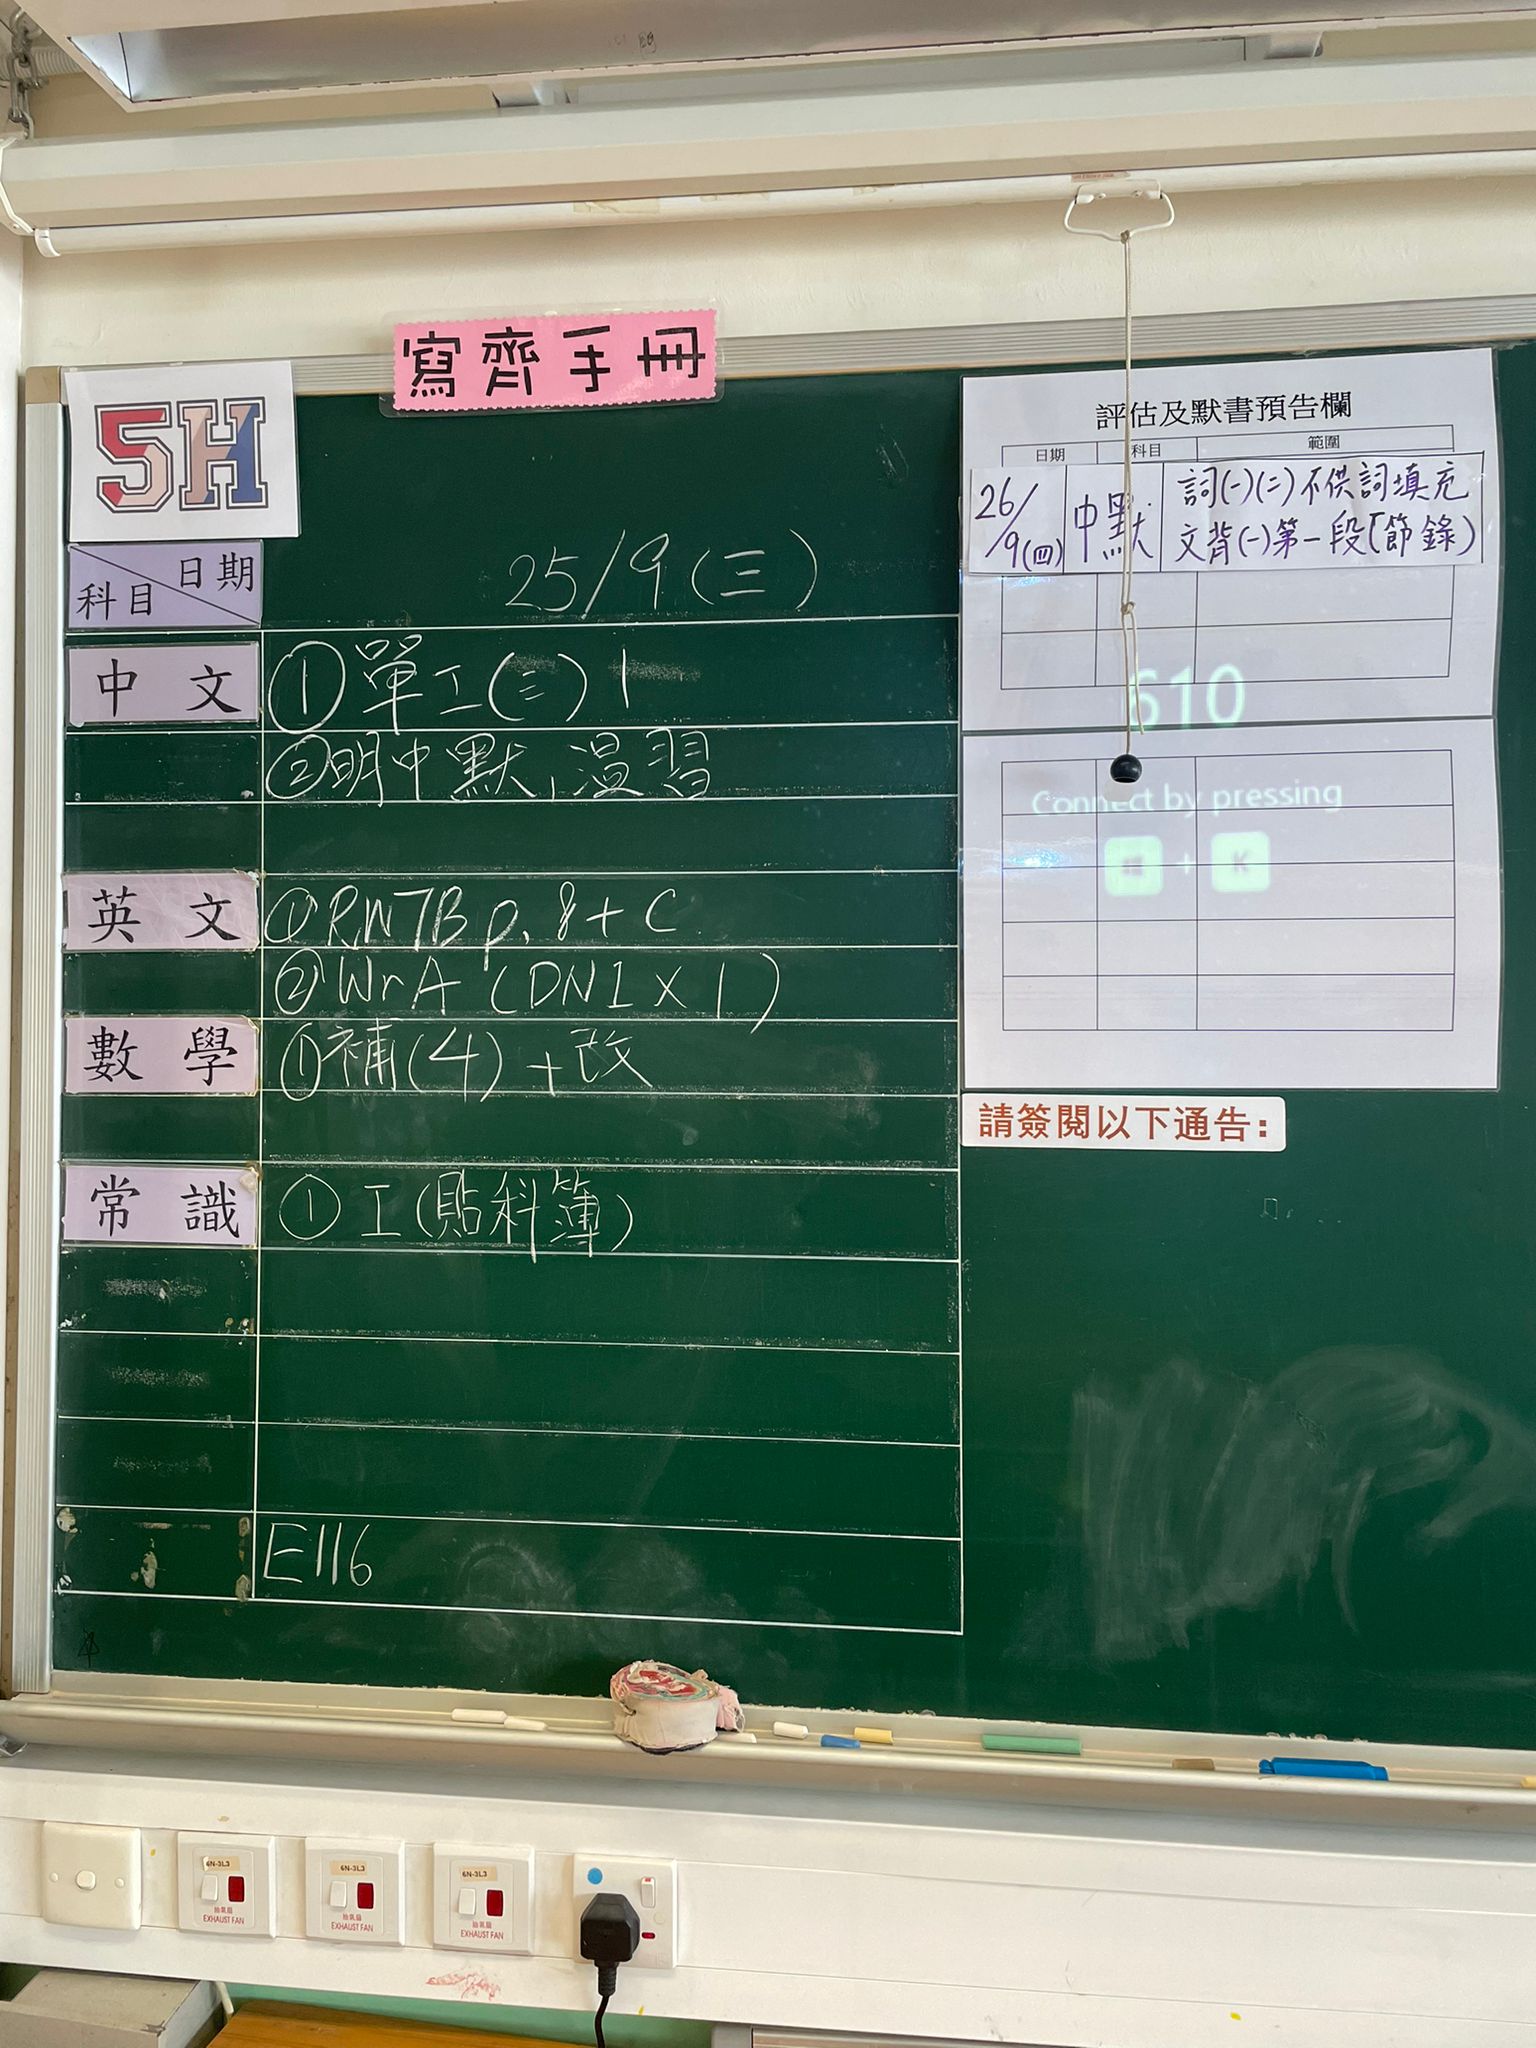 寫齊手冊
5H
日期
科目
25/9(三)
中文
①單工(三)1
②明中默,溫習
英文
①RW7B p.8+C
②WrA (DN1×1)
數學
①補(4)+改
常識
①工(貼科簿)
E116
評估及默書預告欄
日期 科目 範圍
26/9(四) 中默 詞(一)(二)不供詞填充
文背(一)第一段(節錄)
610
Connect by pressing
+ K
請簽閱以下通告:
6N-3L3
抽氣扇
EXHAUST FAN
6N-3L3
抽氣扇
EXHAUST FAN
6N-3L3
抽氣扇
EXHAUST FAN